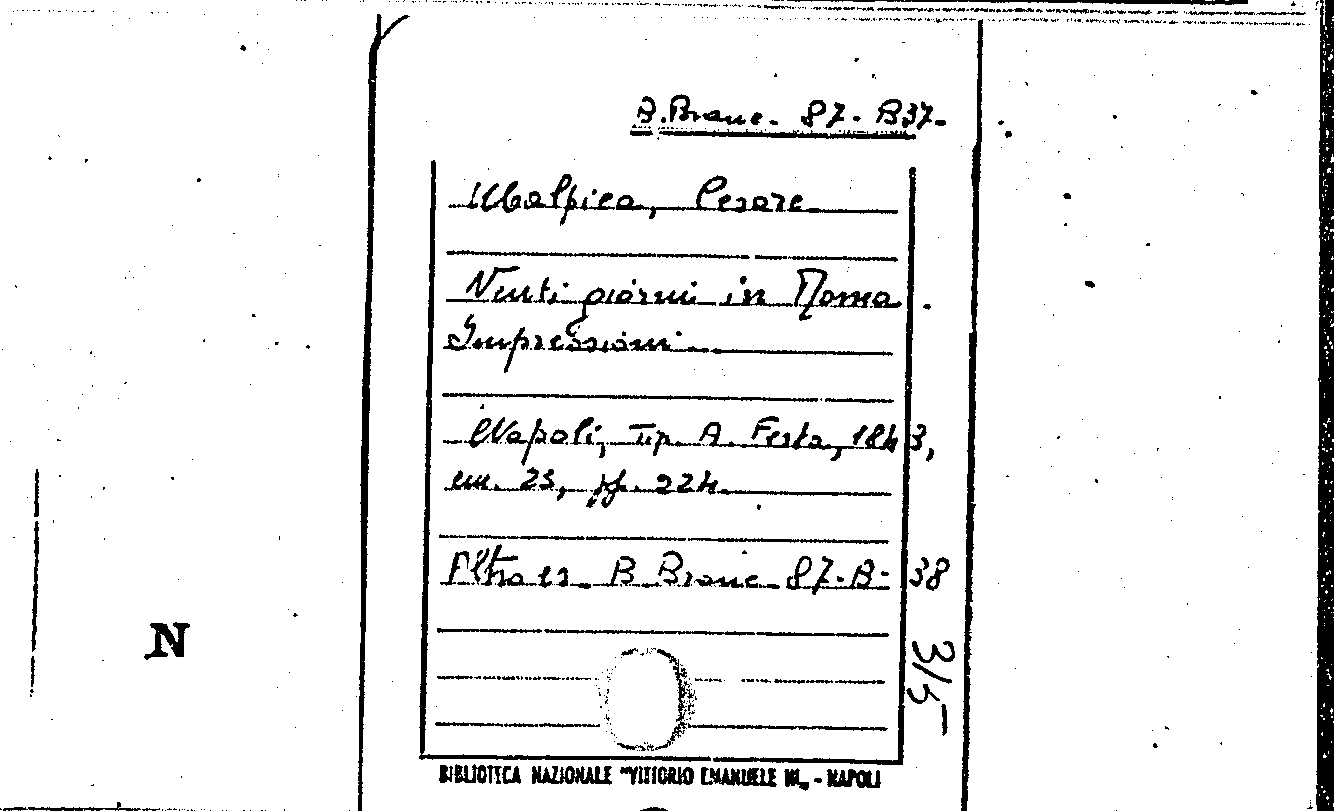 B. Branc. 87. B37.
Malpica, Cesare
Venti giorni in Roma.
Impressioni.
Napoli, Tip. A. Festa, 1843,
cm. 23, pp. 224.
Altro es. B. Branc. 87. B. 38
3/5
N
BIBLIOTECA NAZIONALE "VITTORIO EMANUELE III„ - NAPOLI